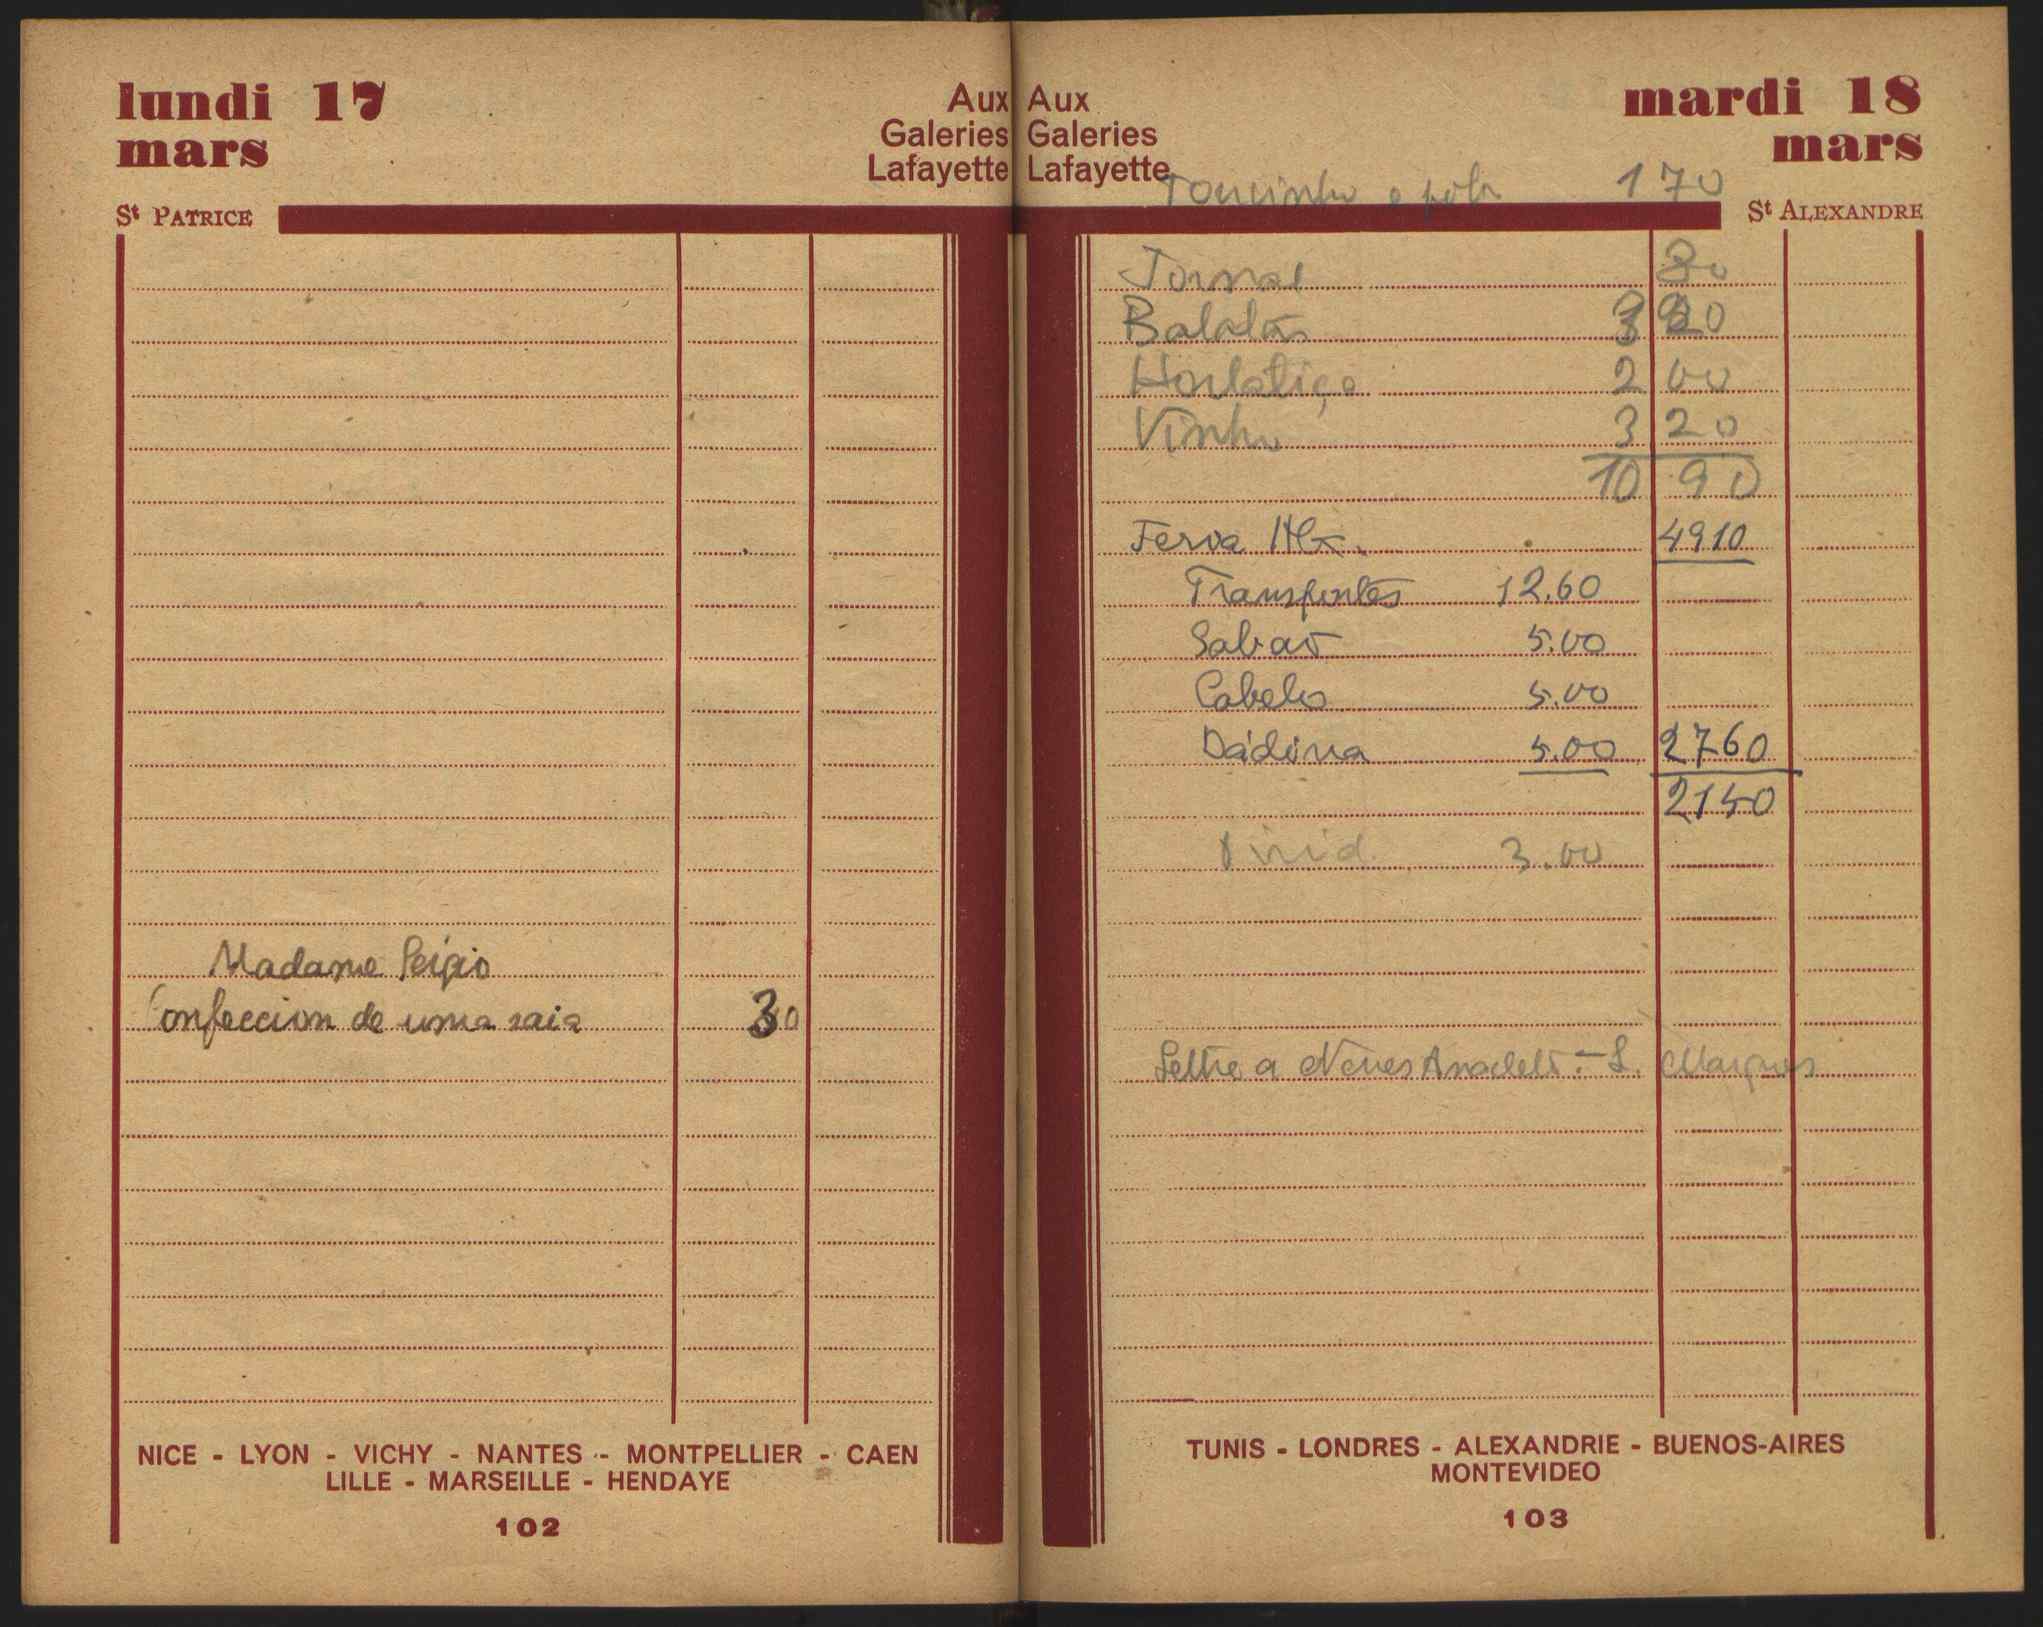 lundi 17
mars
Aux
Galeries
Lafayette
St PATRICE
Madame Sérgio
Confeccion de uma saia 30
NICE - LYON - VICHY - NANTES - MONTPELLIER - CAEN
LILLE - MARSEILLE - HENDAYE
102
Aux
Galeries
Lafayette
mardi 18
mars
Toucinho e 170
St ALEXANDRE
Jornal 30
Batatas 3
Hortaliça 2 00
Vinho 3 20
10 90
4910
Transportes 12.60
Sabão 5.00
Cabelo 5.00
Dádiva 5.00 2760
2150
3.00
Lettre a Neves Anacleto - L. Marques
TUNIS - LONDRES - ALEXANDRIE - BUENOS-AIRES
MONTEVIDEO
103